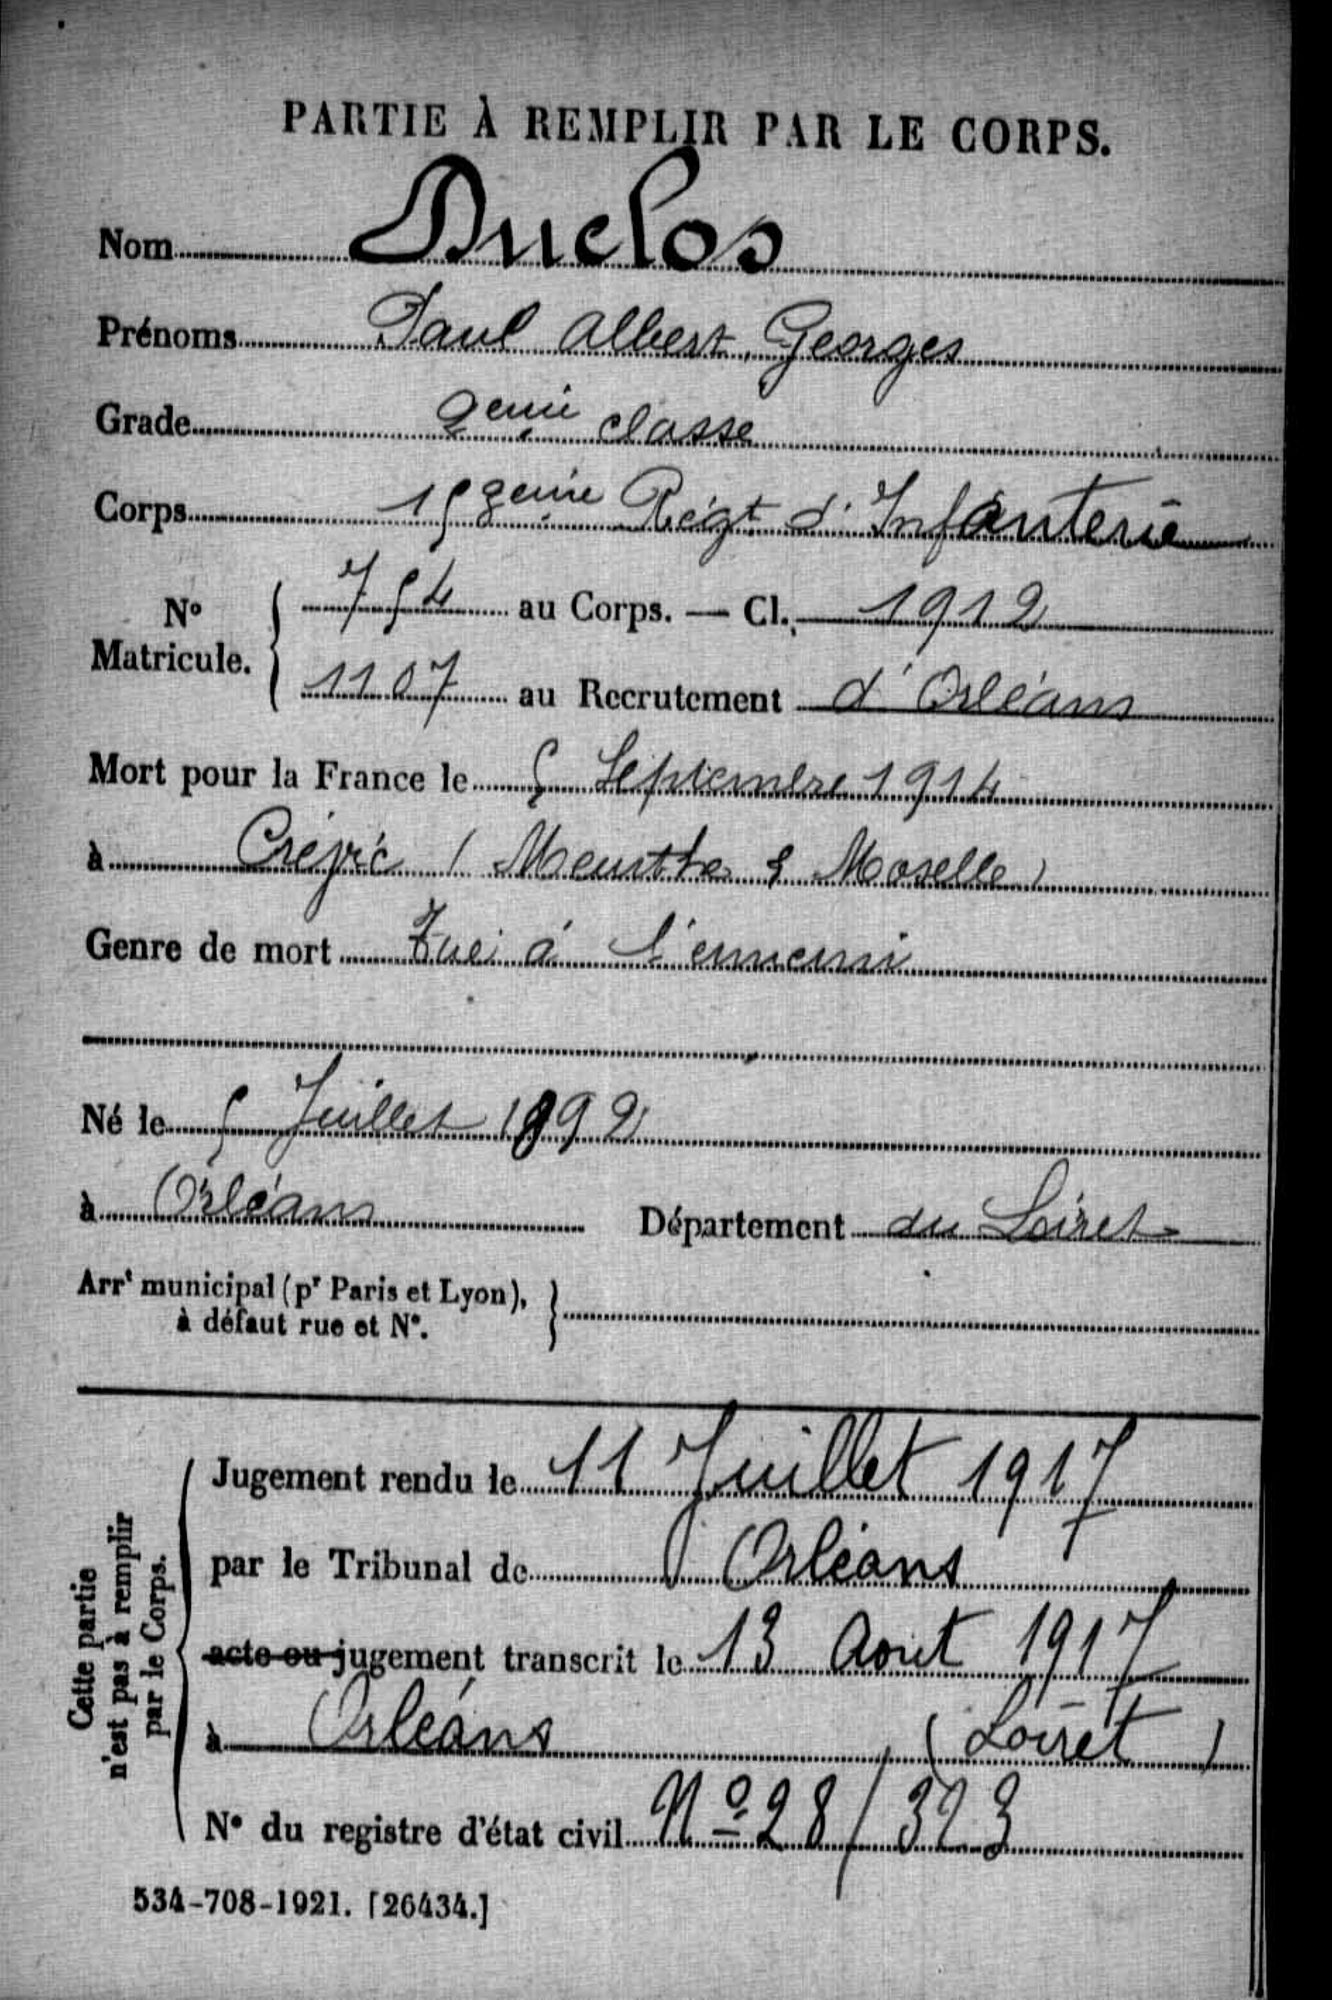 PARTIE À REMPLIR PAR LE CORPS.
Nom Duclos
Prénoms Paul Albert Georges
Grade 2eme classe
Corps 153eme Régt d'Infanterie
N° Matricule. 754 au Corps. — Cl. 1912
1107 au Recrutement d'Orléans
Mort pour la France le 5 Septembre 1914
à (Meurthe & Moselle)
Genre de mort Tué à l'ennemi
Né le 5 Juillet 1892
à Orléans Département du Loiret
Arrt municipal (pr Paris et Lyon),
à défaut rue et N°.
Cette partie
n'est pas à remplir
par le Corps.
Jugement rendu le 11 Juillet 1917
par le Tribunal de Orléans
acte ou jugement transcrit le 13 Aout 1917
à Orléans (Loiret)
N° du registre d'état civil N° 28/323
534-708-1921. [26434.]